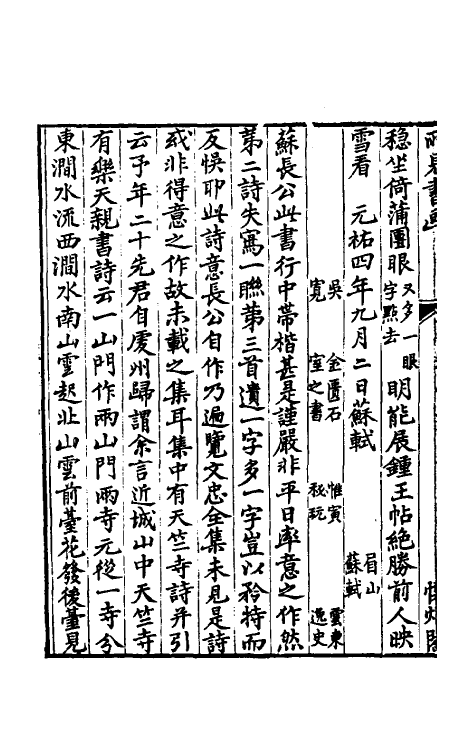 見書畫
穩坐倚蒲團眼又多一眼字點去明能展鍾王帖絶勝前人映
雪看　元祐四年九月二日蘇軾　眉山蘇軾
吳寬　金匱石室之書　惟寅秘玩　雲東逸史
蘇長公此書行中帶楷甚是謹嚴非平日率意之作然
第二詩失寫一聯第三首遺一字多一字豈以矜持而
反悞耶此詩意長公自作乃遍覽文忠全集未見是詩
或非得意之作故未載之集耳集中有天竺寺詩并引
云予年二十先君自虔州歸謂余言近城山中天竺寺
有樂天親書詩云一山門作兩山門兩寺元從一寺分
東澗水流西澗水南山雲起北山雲前臺花發後臺見